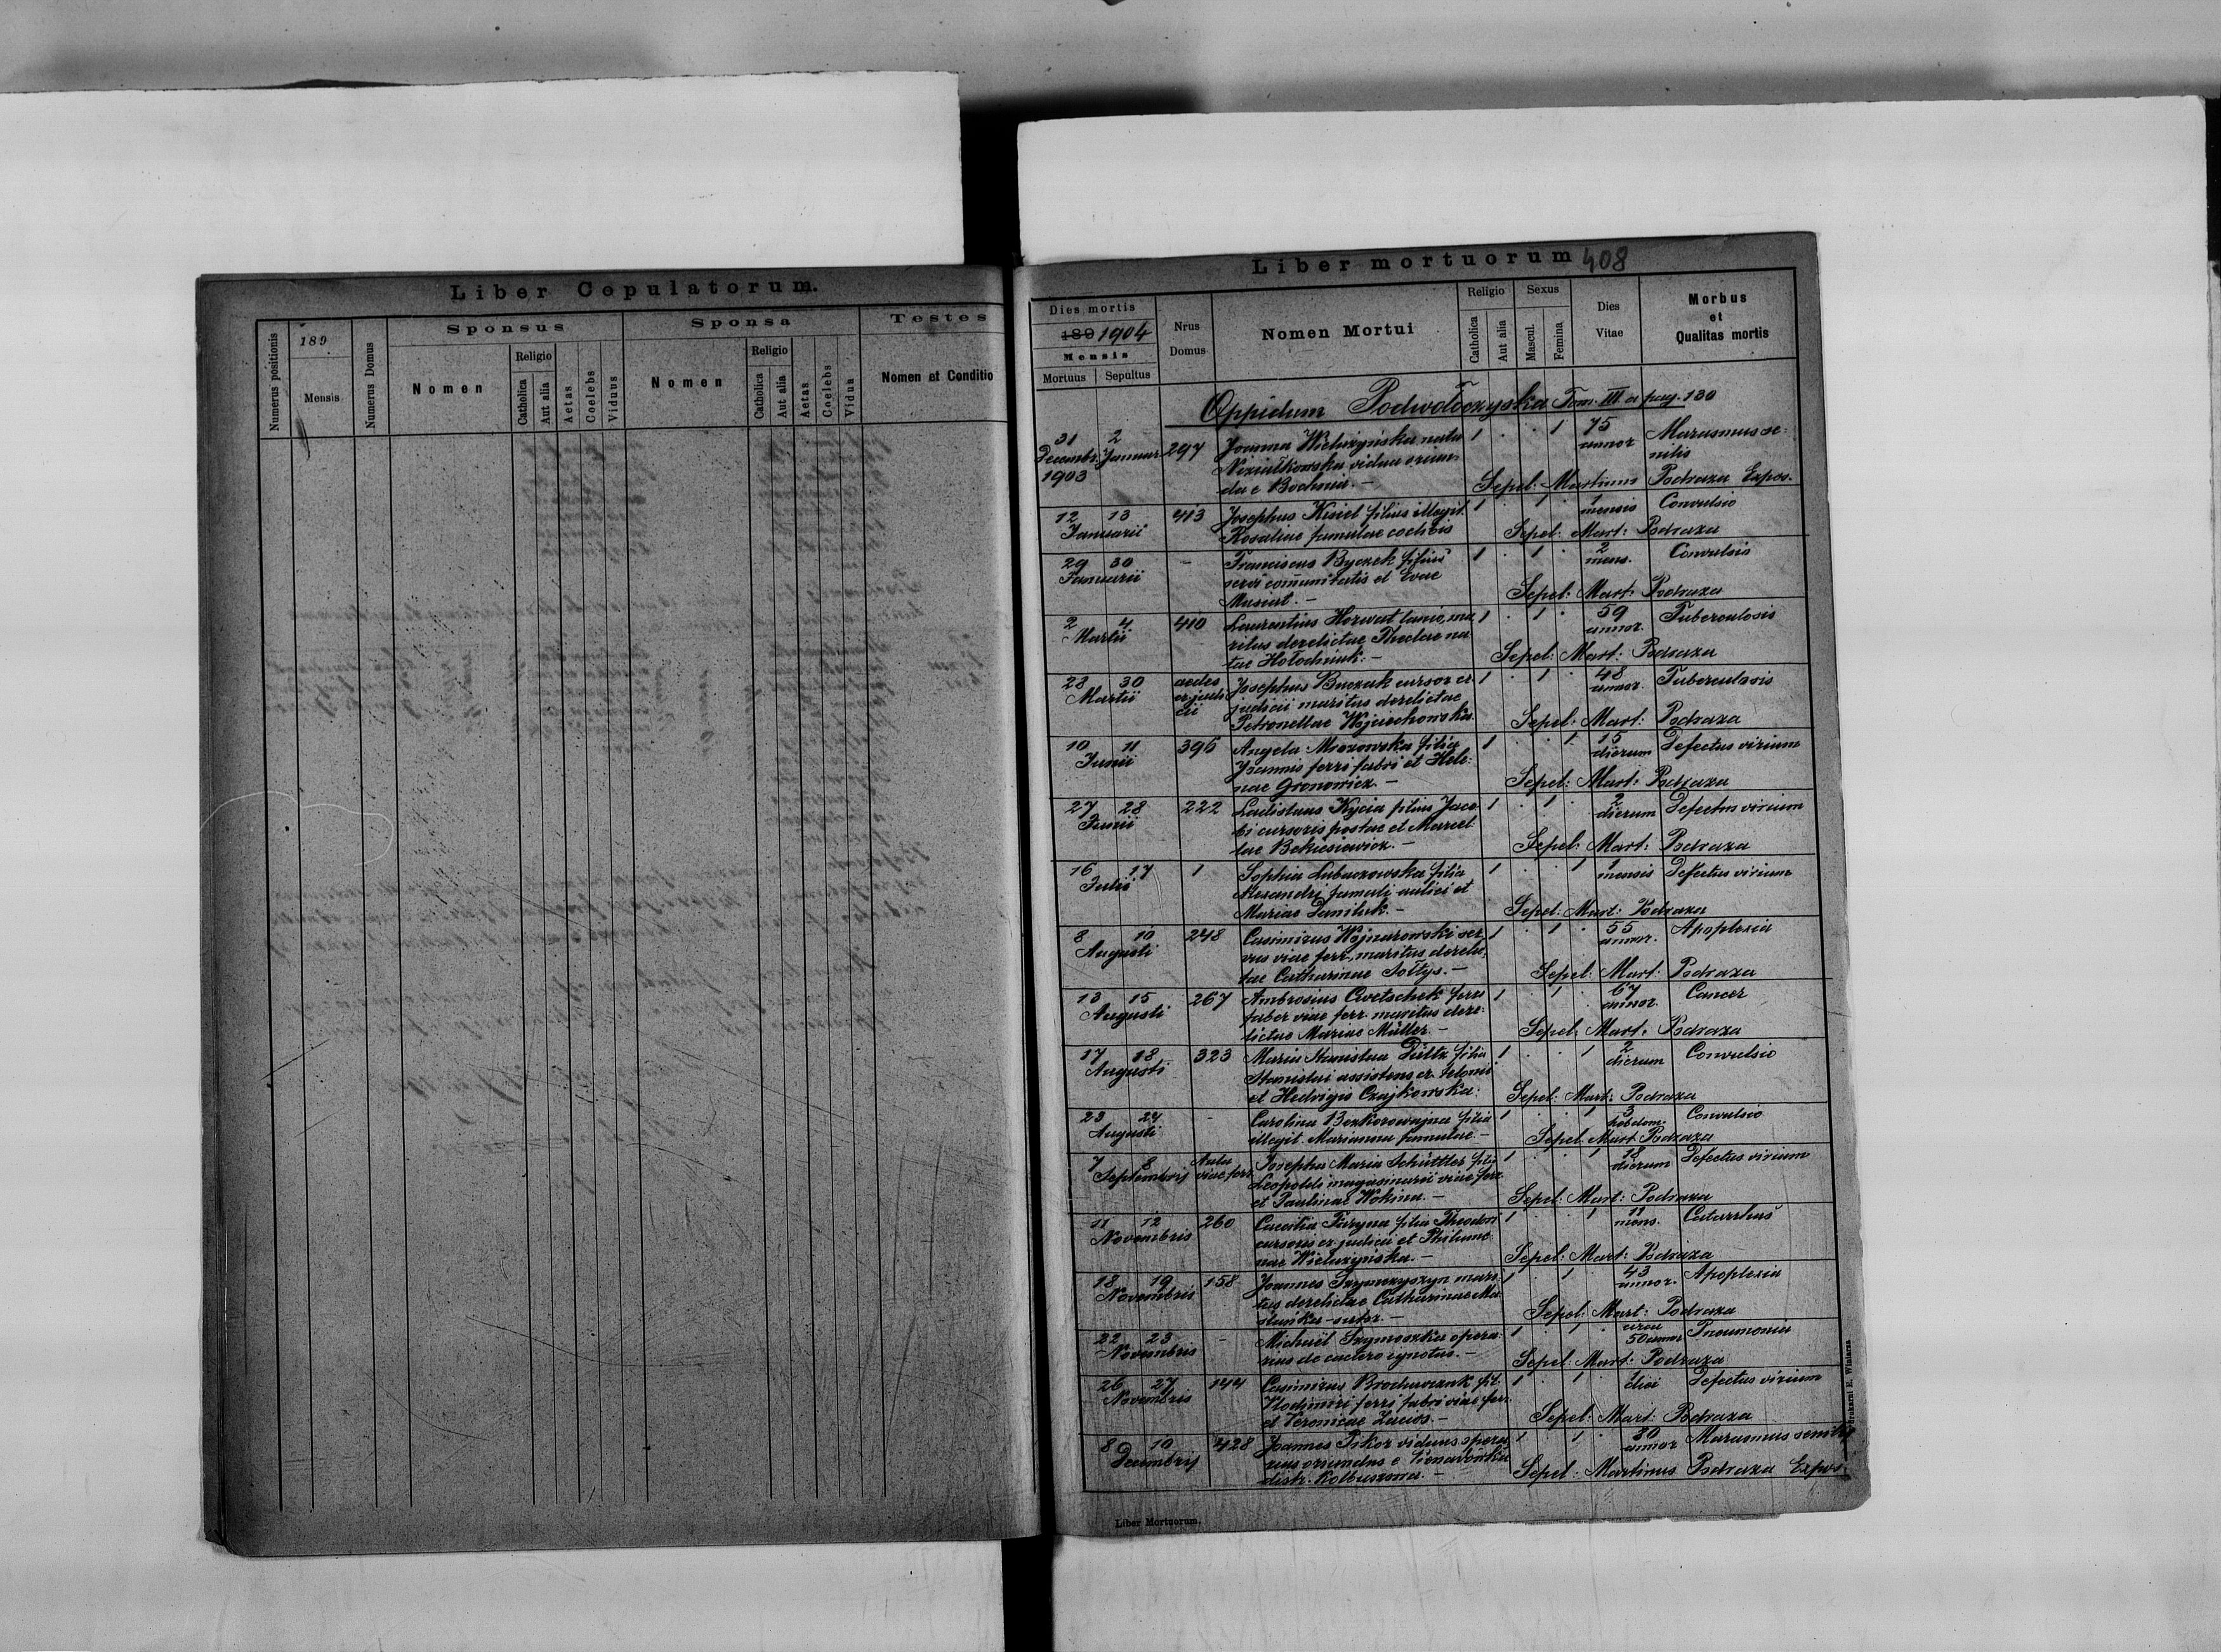 Liber Copulatorum.
Numerus positionis
189
Mensis
Numerus Domus
Sponsus
Nomen
Religio
Catholica
Aut alia
Aetas
Coelebs
Viduus
Sponsa
Nomen
Religio
Catholica
Aut alia
Aetas
Coelebs
Vidua
Testes
Nomen et Conditio
Liber mortuorum 408
Dies mortis
189 1904
Mensis
Mortuus Sepultus
Nrus Domus
Nomen Mortui
Religio
Catholica
Aut alia
Sexus
Mascul.
Femina
Dies Vitae
Morbus
et
Qualitas mortis
Oppidum Podwołoczyska Tom. III a pag. 130
31 2 297 Joanna Wieluzyńska nata 1 . . 1 75 Marasmus se-
Decembr. Januar annor nilis
1903 vidua oriun
da e Bochnia. — Sepel: Martinus Podraza Expos.
12 13 413 Josephus Kisiel filius illegit. 1 . 1 . 1 Convulsio
Januarii Rosaliae famulae coelibis mensis Sepel: Mart: Podraza
29 30 - Franciscus Byczek filius 1 . 1 . 2 Convulsio
Januarii servi communitatis et Evae mens.
Musiał. — Sepel: Mart: Podraza
2 4 410 Laurentius Horwat lanio, ma 1 . 1 . 59 Tuberculosis
Martii ritus derelictae Theclae na annor.
tae Hołodniuk. — Sepel: Mart: Podraza
28 30 aedes Josephus Buczak cursor cr. 1 . 1 . 48 Tuberculosis
Martii cr. judi judicii maritus derelictae annor.
cii Petronellae Wojciechowska. Sepel: Mart: Podraza
10 11 396 Angela Mrozowska filia 1 . . 1 15 Defectus virium
Junii Joannis ferri fabri et Hele- dierum
nae Gronowicz. — Sepel: Mart: Podraza
27 28 222 Ladislaus Kycia filius Jaco- 1 . 1 . 2 Defectus virium
Junii bi cursoris postae et Marcel- dierum
lae Bekiesiewicz. — Sepel: Mart: Podraza
16 17 1 Sophia Lubaczowska filia 1 . . 1 1 Defectus virium
Julii Alexandri famuli aulici et mensis
Mariae Daniluk. — Sepel: Mart: Podraza
8 10 248 Casimirus Wojnarowski ser- 1 . 1 . 55 Apoplexia
Augusti vus viae ferr., maritus derelic- annor.
tae Catharinae Sołtys. — Sepel: Mart: Podraza
13 15 267 Ambrosius Cwetschek ferri 1 1 . 67 Cancer
Augusti faber viae ferr. maritus dere- annor.
lictae Mariae Müller. — Sepel: Mart: Podraza
17 18 323 Maria Stanislaa Dültz filia 1 . . 1 2 Convulsio
Augusti Stanislai assistens cr. telonii dierum
et Hedvigis Czajkowska. Sepel: Mart: Podraza
23 24 - Carolina Bezkorowajna filia 1 . . 1 3 Convulsio
Augusti illegit. Marianna famulae. — hebdom. Sepel: Mart: Podraza
7 8 Aula Josepha Maria Schüttler filia 1 . . 1 18 Defectus virium
Septembris viae ferr. Leopoldi magasinarii viae ferr. dierum
et Paulinae Wokina. — Sepel: Mart: Podraza
11 12 260 Caecilia Furyna filia Theodori 1 . . 1 11 Catarrhus
Novembris cursoris cr. judicii et Philome- mens.
nae Wieluzyńska. — Sepel: Mart: Podraza
18 19 158 Joannes Szymczyszyn mari- 1 . 1 . 43 Apoplexia
Novembris tus derelictae Catharinae Ma annor.
ślanka - sutor. — Sepel: Mart: Podraza
22 23 - Michaël Szymoszka opera- 1 . 1 . circa Pneumonia
Novembris rius de caetero ignotus. — 50 annor Sepel: Mart: Podraza
26 27 144 Casimirus Brochwczuk fil. 1 . 1 . 1 Defectus virium
Novembris Wlodimiri ferri fabri viae ferr. diei
et Veronicae Zając. — Sepel: Mart: Podraza
8 10 428 Joannes Pikor viduus opera 1 1 . 80 Marasmus senilis
Decembris rius oriundus e annor
distr. Kolbuszowa. — Sepel: Martinus Podraza Expos.
Liber Mortuorum.
drukarni E. Winiarza